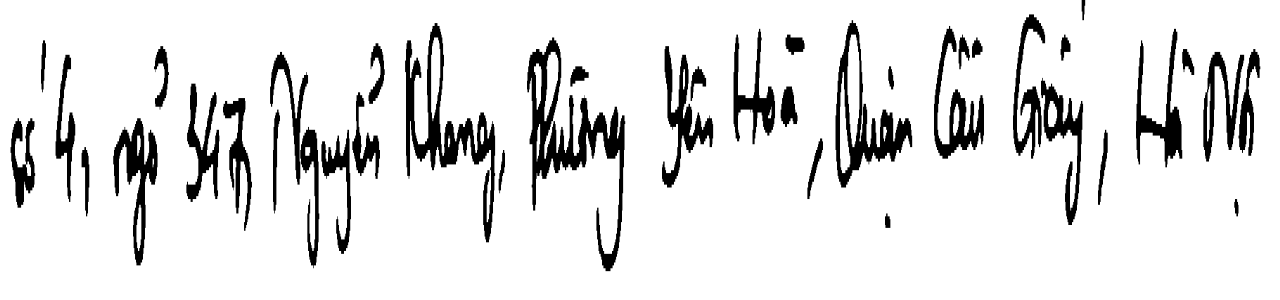 số 4, ngõ 347, Nguyễn Khang, Phường Yên Hoà, Quận Cầu Giấy, Hà Nội